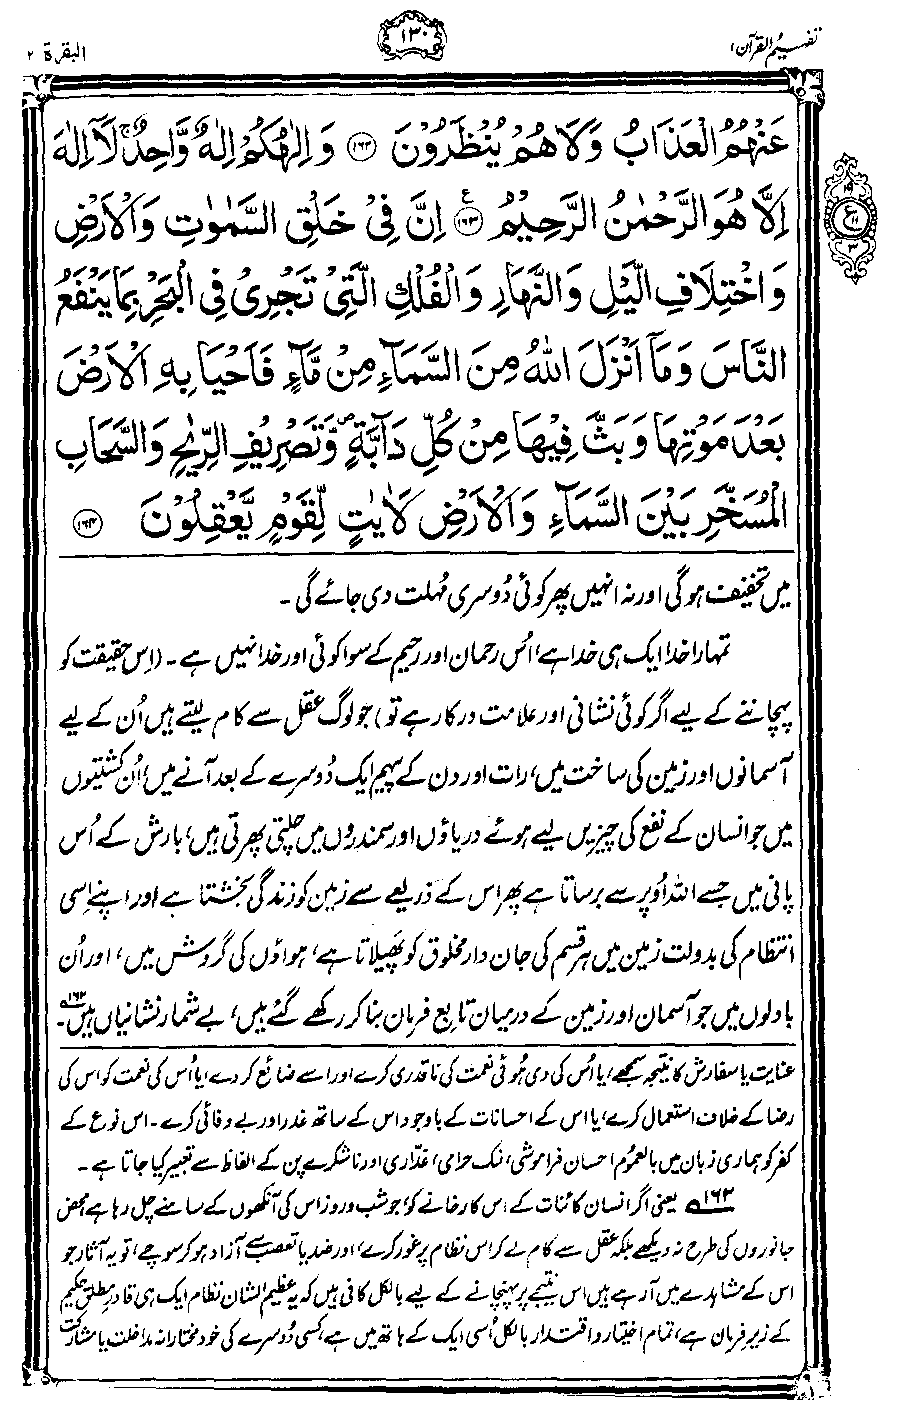 تفہیم القرآن ۱
۱۳۰
البقرۃ ۲
عَنْهُمُ الْعَذَابُ وَلَا هُمْ يُنْظَرُوْنَ ﴿۱۶۲﴾ وَاِلٰهُكُمْ اِلٰهٌ وَّاحِدٌ ۚ لَآ اِلٰهَ
اِلَّا هُوَ الرَّحْمٰنُ الرَّحِيْمُ ﴿۱۶۳﴾ ع اِنَّ فِيْ خَلْقِ السَّمٰوٰتِ وَالْاَرْضِ
وَاخْتِلَافِ الَّيْلِ وَالنَّهَارِ وَالْفُلْكِ الَّتِيْ تَجْرِيْ فِي الْبَحْرِ بِمَا يَنْفَعُ
النَّاسَ وَمَآ اَنْزَلَ اللّٰهُ مِنَ السَّمَآءِ مِنْ مَّآءٍ فَاَحْيَا بِهِ الْاَرْضَ
بَعْدَ مَوْتِهَا وَبَثَّ فِيْهَا مِنْ كُلِّ دَآبَّةٍ ۪ وَّتَصْرِيْفِ الرِّيٰحِ وَالسَّحَابِ
الْمُسَخَّرِ بَيْنَ السَّمَآءِ وَالْاَرْضِ لَاٰيٰتٍ لِّقَوْمٍ يَّعْقِلُوْنَ ﴿۱۶۴﴾
میں تخفیف ہوگی اور نہ انہیں پھر کوئی دُوسری مُہلت دی جائے گی۔
تمہارا خدا ایک ہی خدا ہے، اُس رحمان اور رحیم کے سوا کوئی اور خدا نہیں ہے۔ (اِس حقیقت کو
پہچاننے کے لیے اگر کوئی نشانی اور علامت درکار ہے تو) جو لوگ عقل سے کام لیتے ہیں اُن کے لیے
آسمانوں اور زمین کی ساخت میں، رات اور دن کے پیہم ایک دُوسرے کے بعد آنے میں، اُن کشتیوں
میں جو انسان کے نفع کی چیزیں لیے ہوئے دریاؤں اور سمندروں میں چلتی پھرتی ہیں، بارش کے اُس
پانی میں جسے اللہ اُوپر سے برساتا ہے پھر اس کے ذریعے سے زمین کو زندگی بخشتا ہے اور اپنے اِسی
انتظام کی بدولت زمین میں ہر قسم کی جان دار مخلوق کو پھیلاتا ہے، ہواؤں کی گردش میں، اور اُن
بادلوں میں جو آسمان اور زمین کے درمیان تابع فرمان بنا کر رکھے گئے ہیں، بے شمار نشانیاں ہیں۱۶۳۔
عنایت یا سفارش کا نتیجہ سمجھے، یا اُس کی دی ہُوئی نعمت کی ناقدری کرے اور اسے ضائع کر دے، یا اُس کی نعمت کو اس کی
رضا کے خلاف استعمال کرے، یا اس کے احسانات کے باوجود اس کے ساتھ غدر اور بے وفائی کرے۔ اس نوع کے
کفر کو ہماری زبان میں بالعمُوم احسان فراموشی، نمک حرامی، غدّاری اور ناشکرے پن کے الفاظ سے تعبیر کیا جاتا ہے۔
۱۶۳ یعنی اگر انسان کائنات کے اس کارخانے کو، جو شب و روز اس کی آنکھوں کے سامنے چل رہا ہے، محض
جانوروں کی طرح نہ دیکھے بلکہ عقل سے کام لے کر اس نظام پر غور کرے، اور ضد یا تعصب سے آزاد ہو کر سوچے، تو یہ آثار جو
اس کے مشاہدے میں آرہے ہیں اس نتیجے پر پہنچانے کے لیے بالکل کافی ہیں کہ یہ عظیم الشان نظام ایک ہی قادرِ مطلق حکیم
کے زیرِ فرمان ہے، تمام اختیار و اقتدار بالکل اُسی ایک کے ہاتھ میں ہے، کسی دُوسرے کی خود مختارانہ مداخلت یا مشارکت